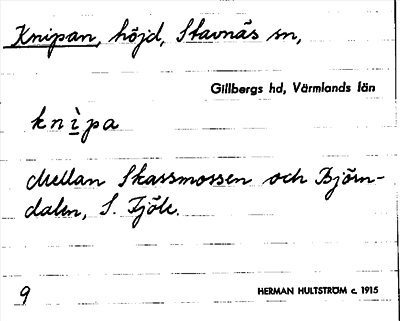 Knipan, höjd, Stavnäs sn,
Gillbergs hd, Värmlands län
knìpa
Mellan Skassmossen och Björn-
dalen, S. Fjöle.
9
HERMAN HULTSTRÖM c. 1915